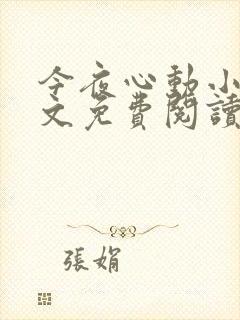 今夜心動小
文免費閱讀
張娟